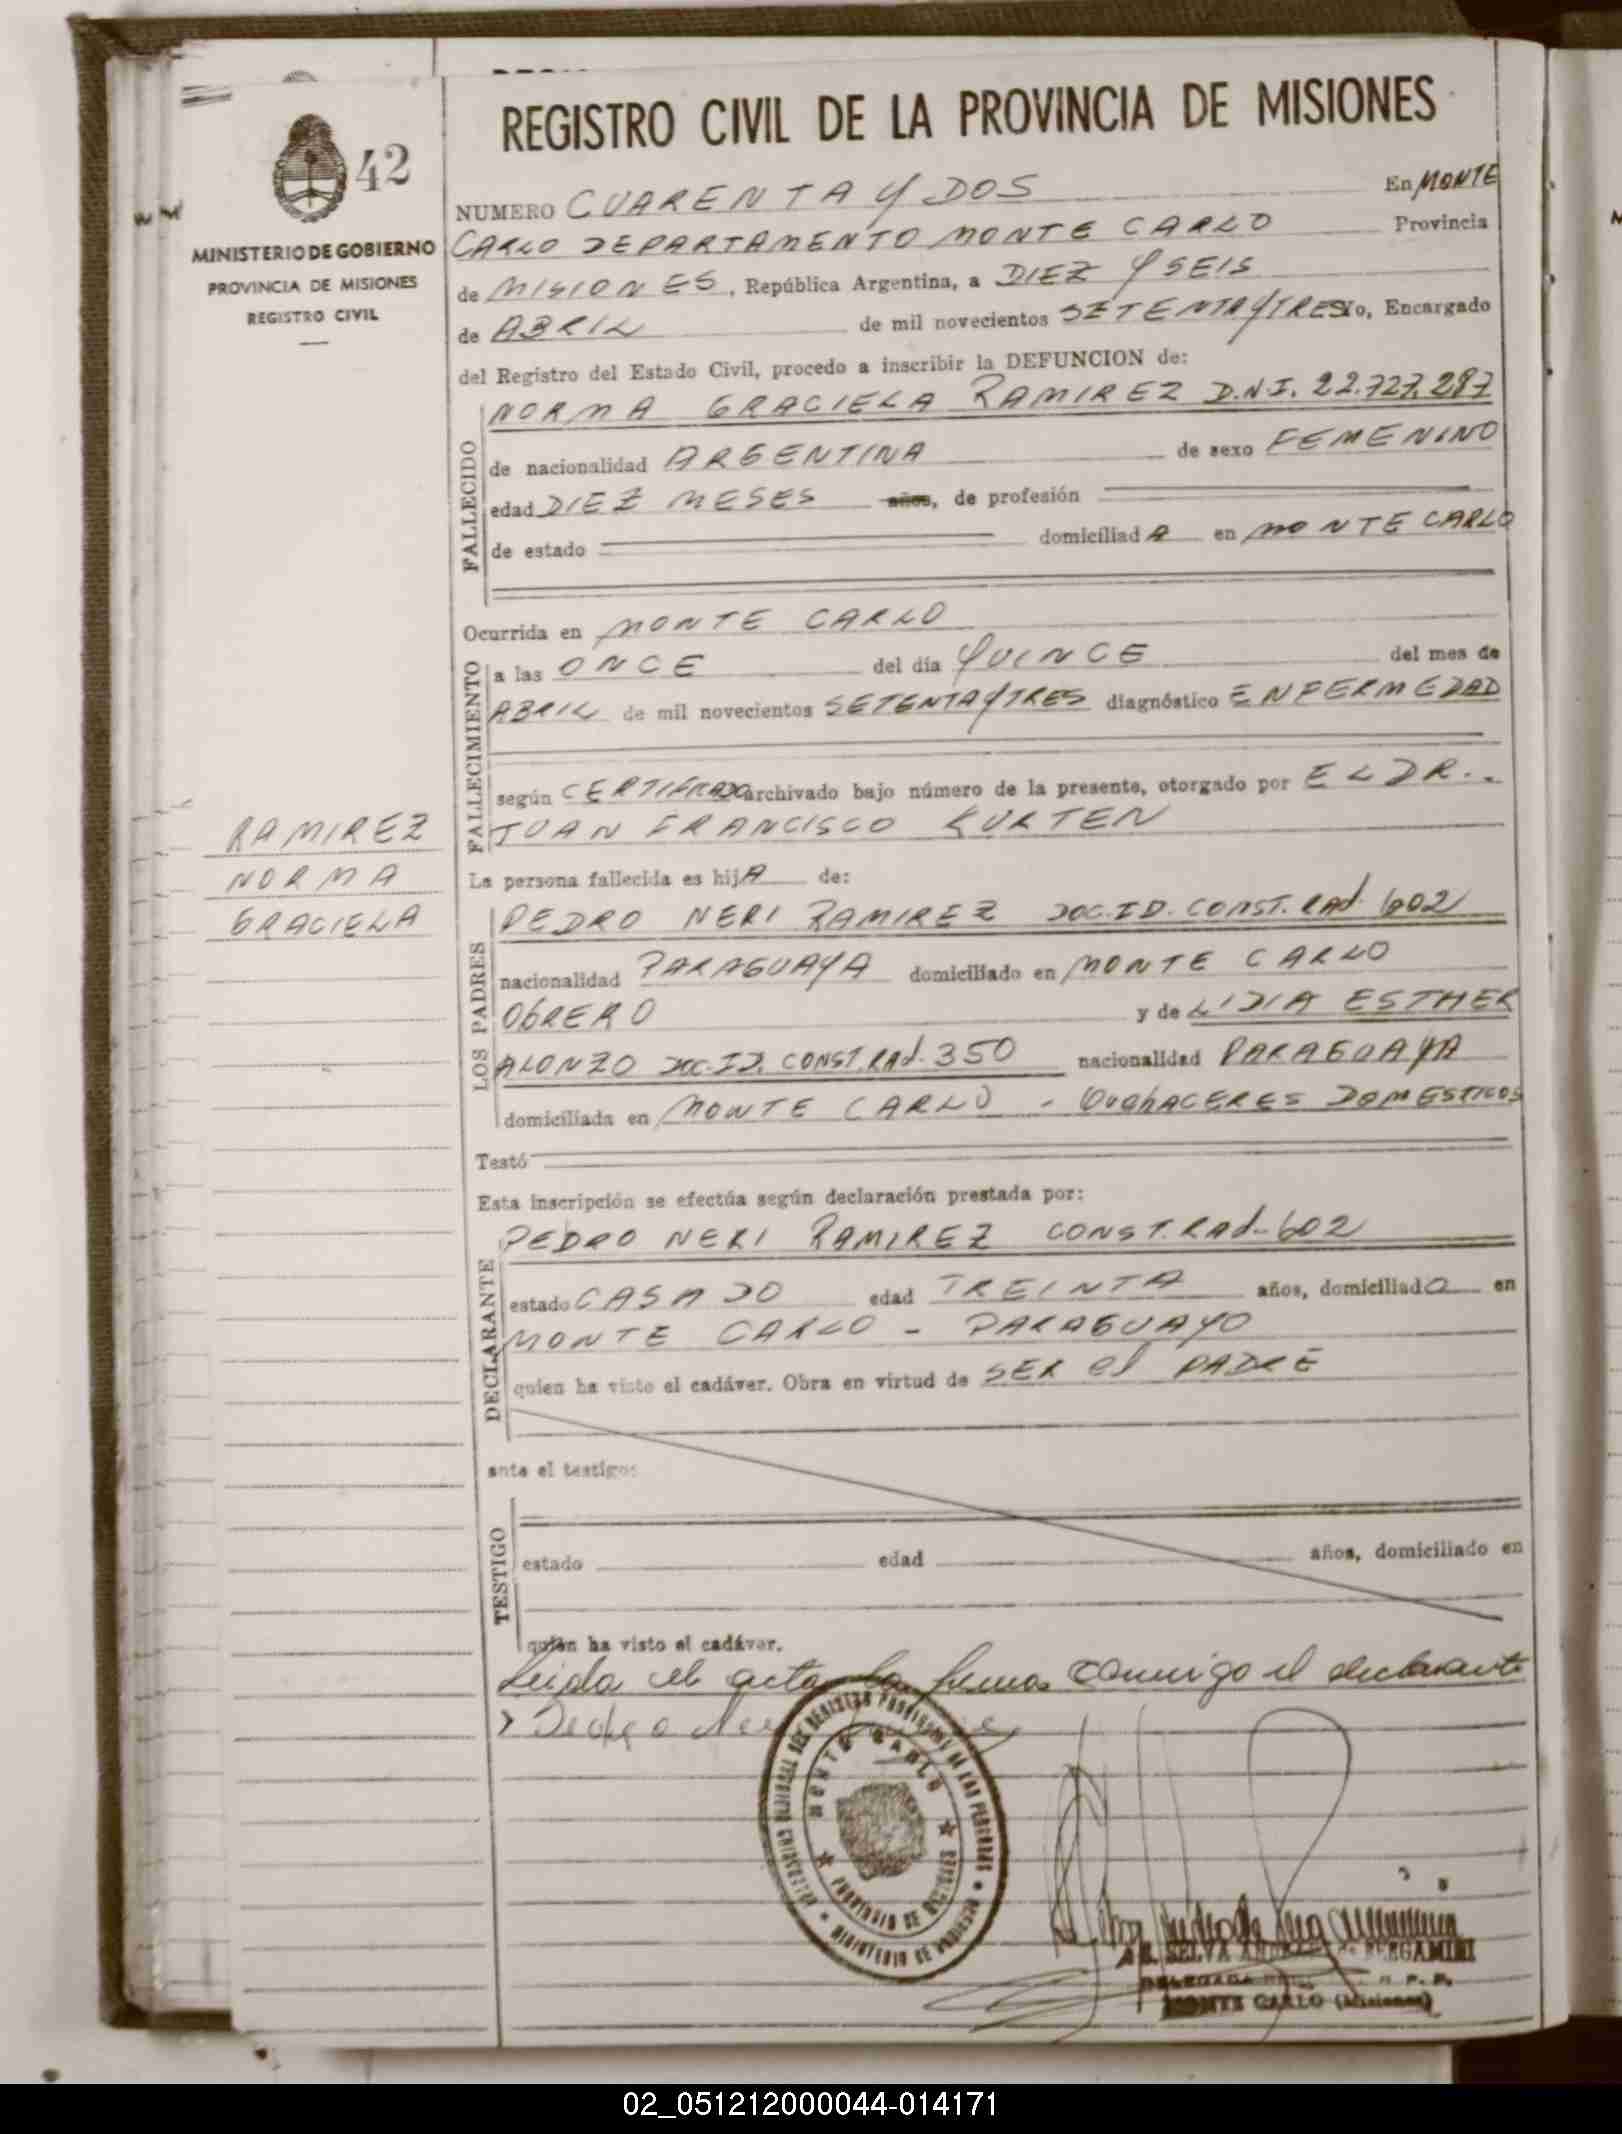 REGISTRO CIVIL DE LA PROVINCIA DE MISIONES
42
MINISTERIO DE GOBIERNO
PROVINCIA DE MISIONES
REGISTRO CIVIL
NUMERO CUARENTA Y DOS En MONTE
CARLO DEPARTAMENTO MONTE CARLO Provincia
de MISIONES, República Argentina, a DIEZ Y SEIS
de ABRIL de mil novecientos SETENTA Y TRES Yo, Encargado
del Registro del Estado Civil, procedo a inscribir la DEFUNCION de:
FALLECIDO
NORMA GRACIELA RAMIREZ D.N.I. 22.727.287
de nacionalidad ARGENTINA de sexo FEMENINO
edad DIEZ MESES años, de profesión
de estado domiciliad A en MONTE CARLO
Ocurrida en MONTE CARLO
FALLECIMIENTO
a las ONCE del día QUINCE del mes de
ABRIL de mil novecientos SETENTA Y TRES diagnóstico ENFERMEDAD
según CERTIFICADO archivado bajo número de la presente, otorgado por EL DR.
JUAN FRANCISCO KURTEN
RAMIREZ
NORMA
GRACIELA
La persona fallecida es hijA de:
LOS PADRES
PEDRO NERI RAMIREZ DOC.ID. CONST. RAd. 602
nacionalidad PARAGUAYA domiciliado en MONTE CARLO
ObRERO y de LIDIA ESTHER
ALONZO DOC.ID. CONST.RAd. 350 nacionalidad PARAGUAYA
domiciliada en MONTE CARLO - QUEhACERES DOMESTICOS
Testó
Esta inscripción se efectúa según declaración prestada por:
DECLARANTE
PEDRO NERI RAMIREZ CONST.RAd-602
estado CASADO edad TREINTA años, domiciliadO en
MONTE CARLO - PARAGUAYO
quien ha visto el cadáver. Obra en virtud de SER el PADRE
ante el testigo:
TESTIGO
estado edad años, domiciliado en
quien ha visto el cadáver.
Leida el acta la firma conmigo el declarante
Pedro Neri
MONTE CARLO
PROVINCIA DE MISIONES
SELVA BERGAMINI
DELEGADA
MONTE CARLO (Misiones)
02_051212000044-014171